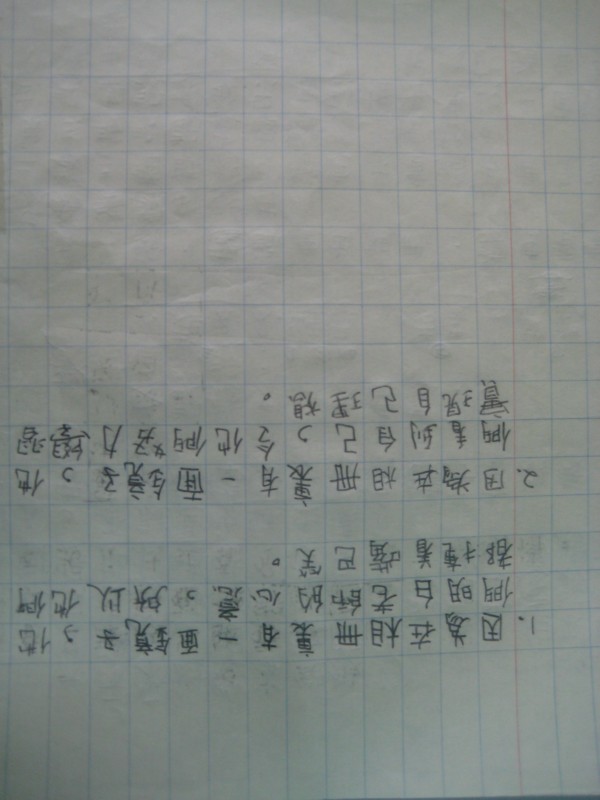 1. 因為在相冊裏有一面鏡子，他
們明白老師的心意，所以他們
都掩着嘴巴笑。
2. 因為在相冊裏有一面鏡子，他
們看到自己，令他們努力學習
實現自己理想。